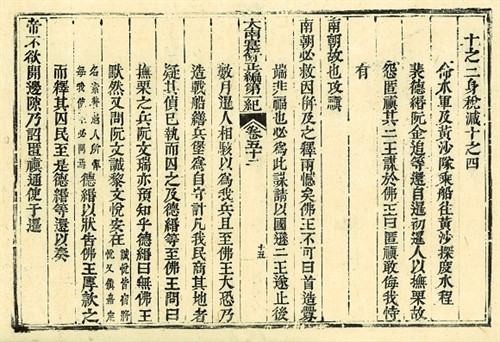 十之二身稅減十之四
命水軍及黃沙隊乘船往黃沙探度水程
裴德縉阮金追等還自暹初暹人以撫栗故
怨匿禛其二王謀於佛王曰匿禛敢侮我恃
有
南朝故也攻討
南朝必救因併及之釋兩憾矣佛王不可曰首造釁
端非福也必為此謀請以國遜二王遂止後
大南寔錄正編第一紀 卷五十二 十五
數月暹人相駭以為我兵且至佛王大恐乃
造戰船繕兵堡為自守計凡我民商其地者
疑其偵己執而囚之及德縉等至佛王問曰
撫栗之兵阮文瑞亦預知乎德縉曰無佛王
默然又問阮文誠黎文悅安在
誠悅皆宿將
悅又鎮嘉定
暹人所憚
每我使至必問焉
德縉以狀告佛王厚款之
而釋其囚民至是德縉等還以奏
帝不欲開邊隙乃詔匿禛通使于暹